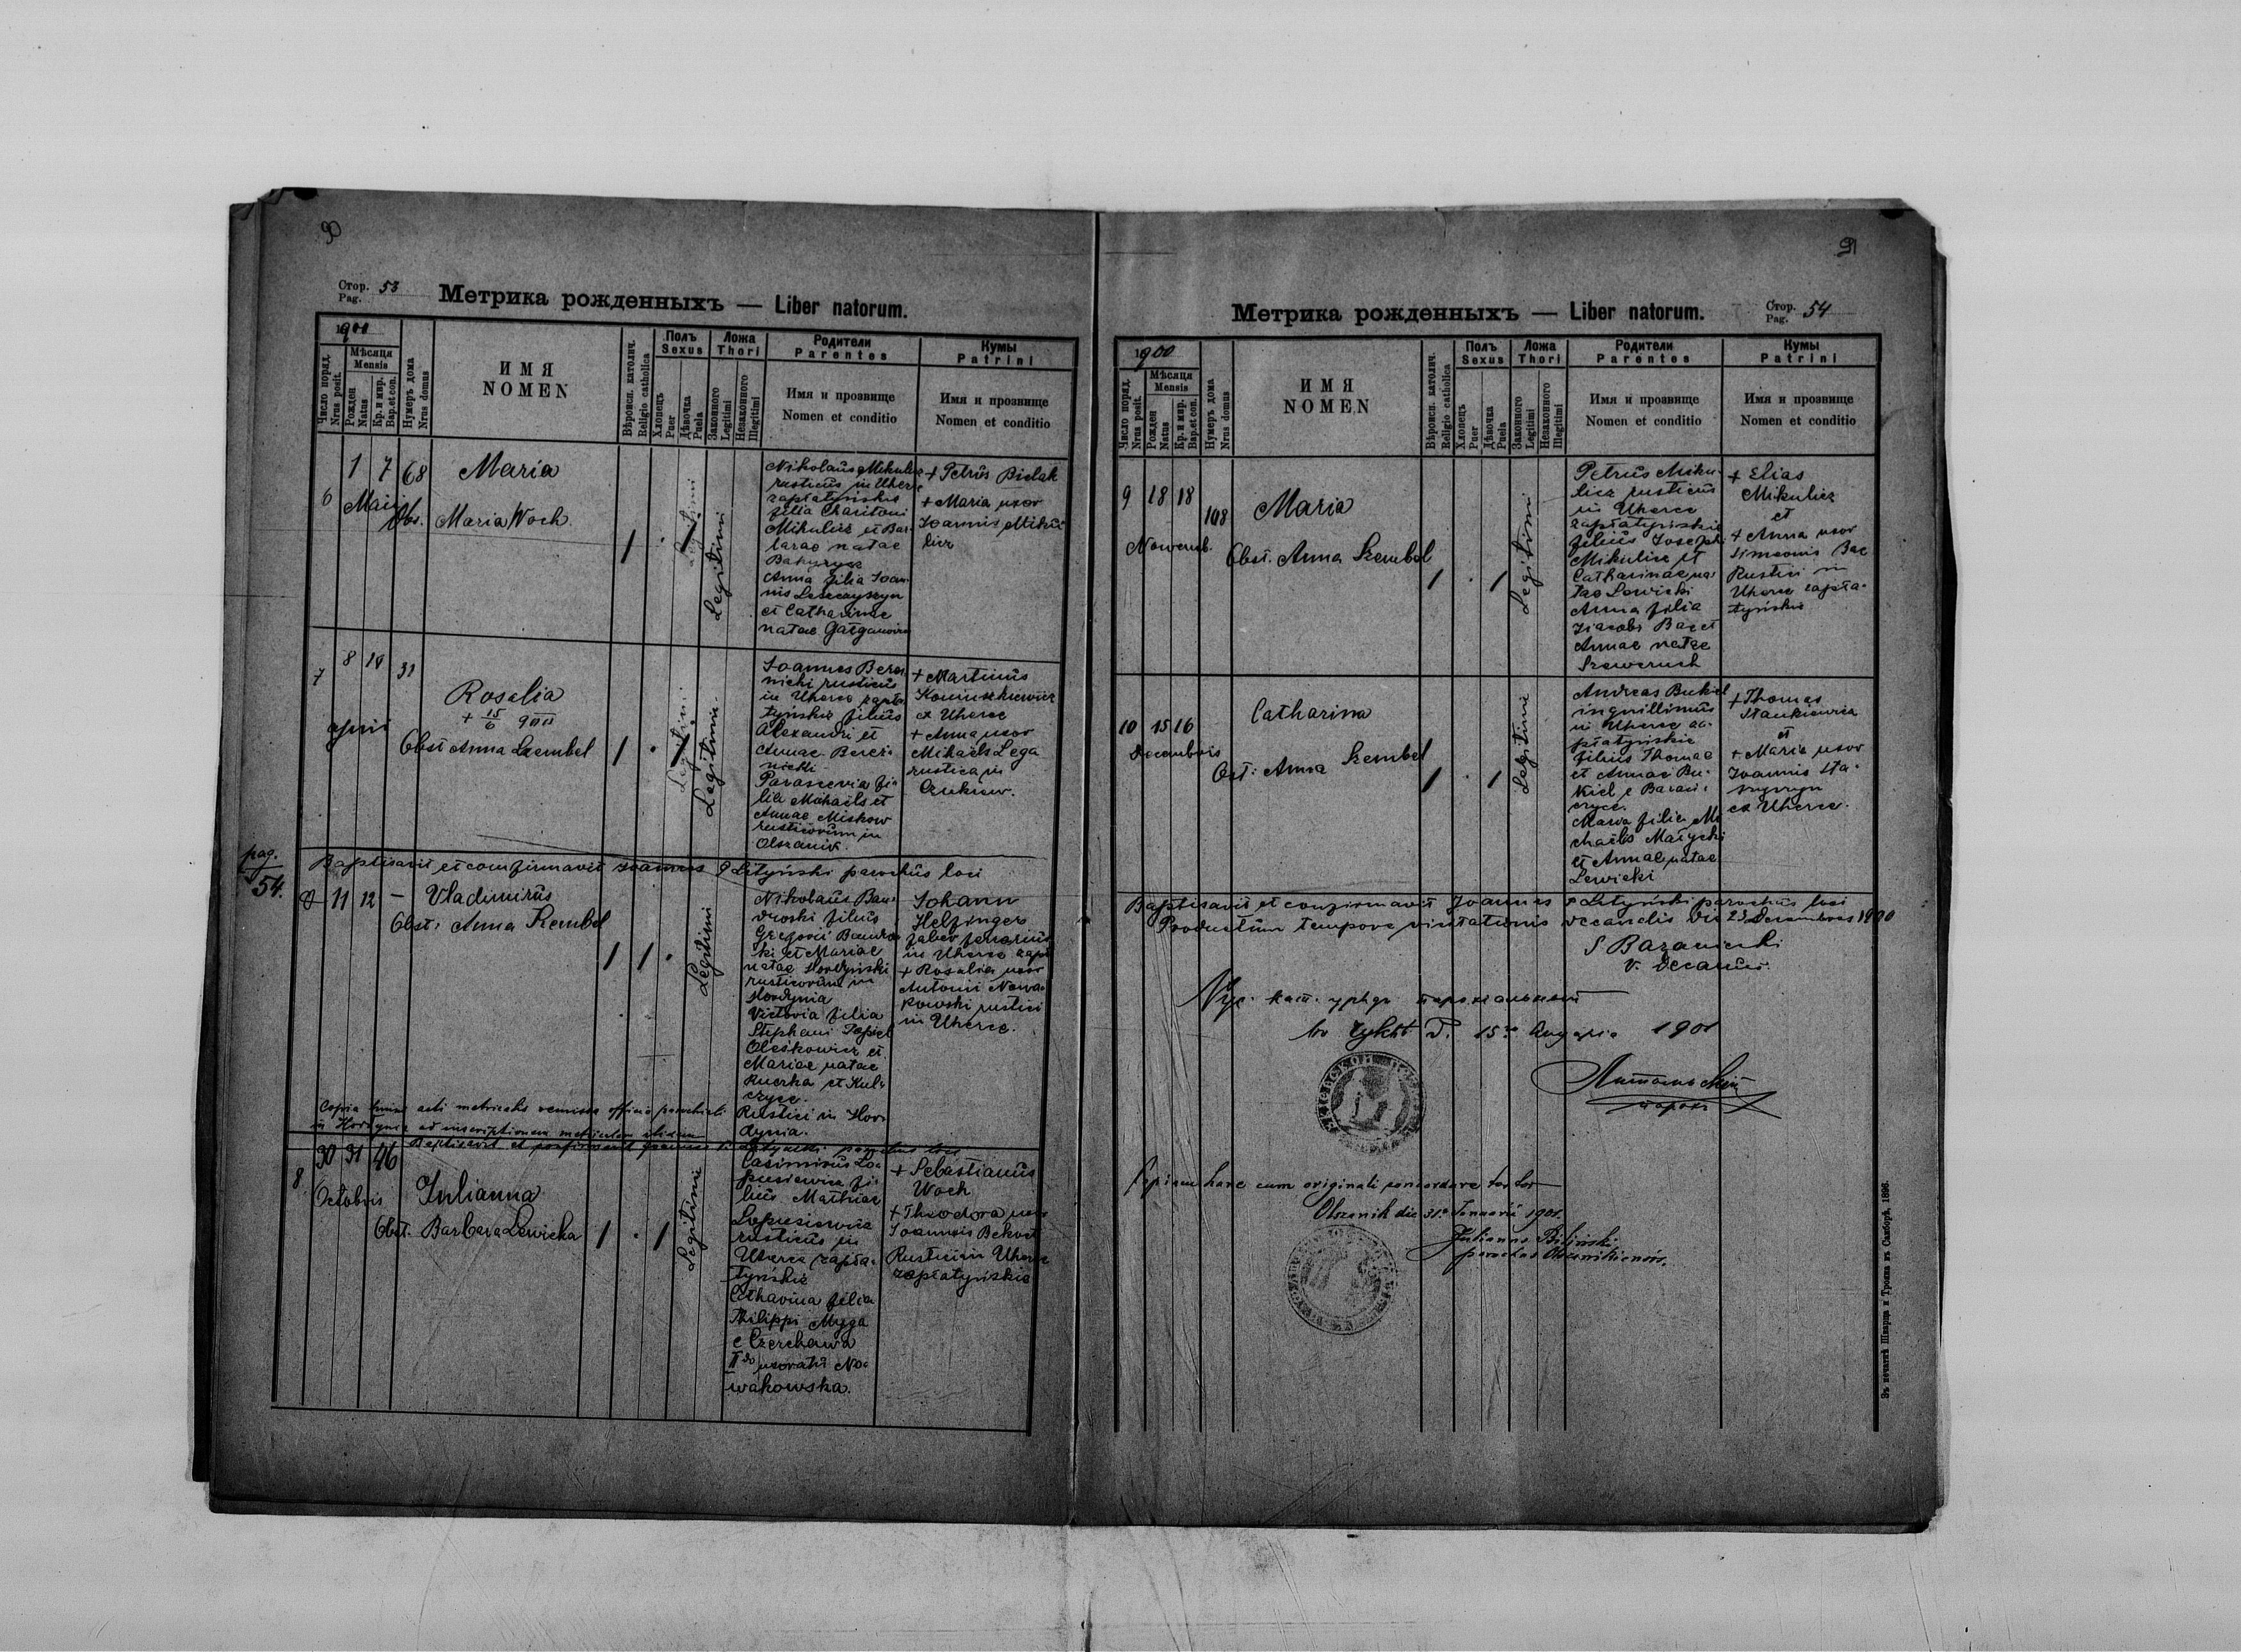 90
Стор. Pag. 53
Метрика рожденныхъ — Liber natorum.
1900
Число поряд. Nrus posit.
Мѣсяця Mensis
Рожден Natus
Кр. и мѵр. Bap. et con.
Нумеръ дома Nrus domus
ИМЯ
NOMEN
Вѣроисп. католич. Religio catholica
Полъ Sexus
Хлопецъ Puer
Дѣвочка Puela
Ложа Thori
Законного Legitimi
Незаконного Illegitimi
Родители
Parentes
Имя и прозвище
Nomen et conditio
Кумы
Patrini
Имя и прозвище
Nomen et conditio
6
1 7 68
Maii
Maria
Obs. Maria Woch
1
Legitimi
Nikolaus Mikulicz
rusticus in Uherce
zapłatyńskie
filia Charitoni
Mikulicz et Bar-
barae natae
Anna filia Joan-
nis Leszczyszyn
et Catharinae
natae
+ Petrus Bielak
+ Maria uxor
Joannis Miku-
licz
7
8 10 31
Rosalia
+ 15/6 900
Obst Anna Szembel
1
Legitimi
Joannes Berez-
nicki rusticus
in Uherce zapła-
tyńskie filius
Alexandri et
Annae Berez-
nicki
Parascevia fi-
lia Michaëlis et
Annae Miskow
rusticorum in
Olszanik.
+ Martinus
ex Uherce
+ Anna uxor
Michaëlis Lega
rustica in
Czukiew.
Baptisavit et confirmavit Joannes Lityński parochus loci
pag.
54.
11 12 —
Vladimirus
Obst: Anna Szembel
1 1
Legitimi
Nikolaus Ban-
droski filius
Gregorii Bandros-
ki et Mariae
natae Hordyński
rusticorum in
Hordynia
Victoria filia
Stephani Popiel
Oleskowicz et
Mariae natae
Kuczka et Kul-
czyce.
Rustici in Hor-
dynia.
Johann
Helfinger
faber ferrarius
in Uherce zapł
+ Rosalia uxor
Antonii Nowa-
kowski rustici
in Uherce.
Copia huius acti metricalis remissa officio parochiali
in Hordynia ad inscriptionem
Baptisavit et confirmavit Joannes Lityński parochus loci
8
30 31 46
Octobris
Julianna
Obst. Barbara Lewicka
1 1
Legitimi
Casimirus Lo-
pusiewicz fi-
lius Mathiae
Lopusiewicz
rusticus in
Uherce zapła-
tyńskie
Catharina filia
Philippi Myga
e Czerchawa
IIdo uxorata No-
wakowska.
+ Sebastianus
Woch
+ Theodora uxor
Joannis
Rustici in Uherce
zapłatyńskie
91
Метрика рожденныхъ — Liber natorum.
Стор. Pag. 54
1900
Число поряд. Nrus posit.
Мѣсяця Mensis
Рожден Natus
Кр. и мѵр. Bap. et con.
Нумеръ дома Nrus domus
ИМЯ
NOMEN
Вѣроисп. католич. Religio catholica
Полъ Sexus
Хлопецъ Puer
Дѣвочка Puela
Ложа Thori
Законного Legitimi
Незаконного Illegitimi
Родители
Parentes
Имя и прозвище
Nomen et conditio
Кумы
Patrini
Имя и прозвище
Nomen et conditio
9 18 18 108
Novemb.
Maria
Obst. Anna Szembel
1 1
Legitimi
Petrus Miku-
licz rusticus
in Uherce
zapłatyńskie
filius Josephi
Mikulicz et
Catharinae na-
tae Lewicki
Anna filia
Jacobi Bac et
Annae natae
Szewczuch
+ Elias
Mikulicz
et
+ Anna uxor
Simeonis Bac
Rustici in
Uherce zapła-
tyńskie
10 15 16
Decembris
Catharina
Obst: Anna Szembel
1 1
Legitimi
Andreas Bukiel
inquillinus
in Uherce za-
płatyńskie
filius Thomae
et Annae Bu-
kiel e
Maria filia Mi-
chaëlis Małycki
et Annae natae
Lewicki
+ Thomas
Stankiewicz
et
+ Maria uxor
Joannis
ex Uherce.
Baptisavit et confirmavit Joannes Lityński parochus loci
Productum tempore visitationis decanalis die 23 Decembris 1900
v. decanus.
1901
Copiam hanc cum originali concordare testor
Olszanik die 31 Januarii 1901.
Julianus Biliński
parochus Olszanikiensis.
Въ печатнѣ Шварца и Трояна въ Самборѣ, 1896.